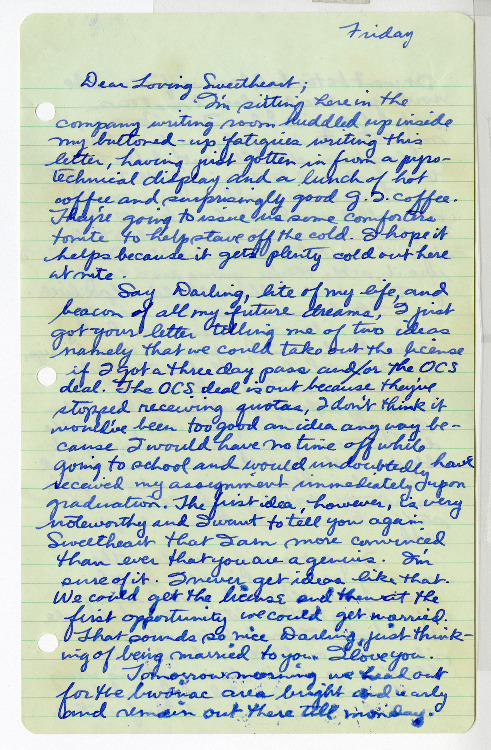 Friday
Dear Loving Sweetheart;
I'm sitting here in the
company writing room huddled up inside
my buttoned-up fatigues writing this
letter, having just gotten in from a pyro-
technical display and a lunch of hot
coffee and, surprisingly good G.I. coffee.
They're going to issue us some comforters
tonite to help stave off the cold. I hope it
helps because it gets plenty cold out here
at nite.
Say Darling, lite of my life, and
beacon of all my future dreams, I just
got your letter telling me of two ideas
namely that we could take out the license
if I got a three day pass and/or the OCS
deal. The OCS deal is out because they've
stopped receiving quotas, I don't think it
would've been too good an idea anyway be-
cause I would have no time off while
going to school and would undoubtedly have
received my assignment immediately upon
graduation. The first idea, however, is very
noteworthy and I want to tell you again
Sweetheart that I am more convinced
than ever that you are a genius. I'm
sure of it. I never get ideas like that.
We could get the license and then at the
first opportunity we could get married.
That sounds so nice Darling, just think-
ing of being married to you. I love you.
Tomorrow morning we head out
for the bivouac area bright and early
and remain out there till monday.